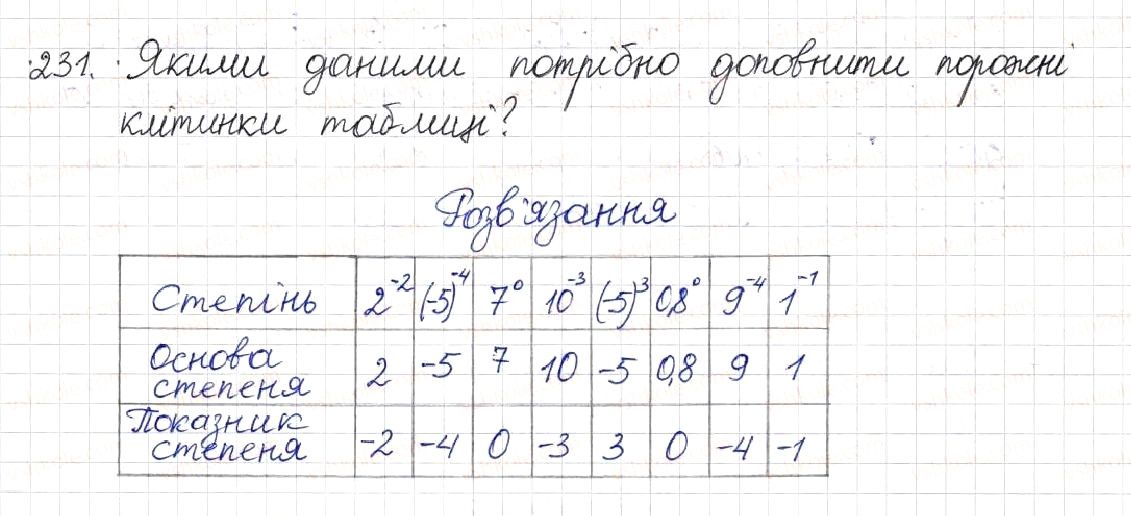 231. Якими даними потрібно доповнити порожні
клітинки таблиці?
Розв'язання
Степінь 2⁻² (-5)⁻⁴ 7⁰ 10⁻³ (-5)³ 0,8⁰ 9⁻⁴ 1⁻¹
Основа
степеня 2 -5 7 10 -5 0,8 9 1
Показник
степеня -2 -4 0 -3 3 0 -4 -1